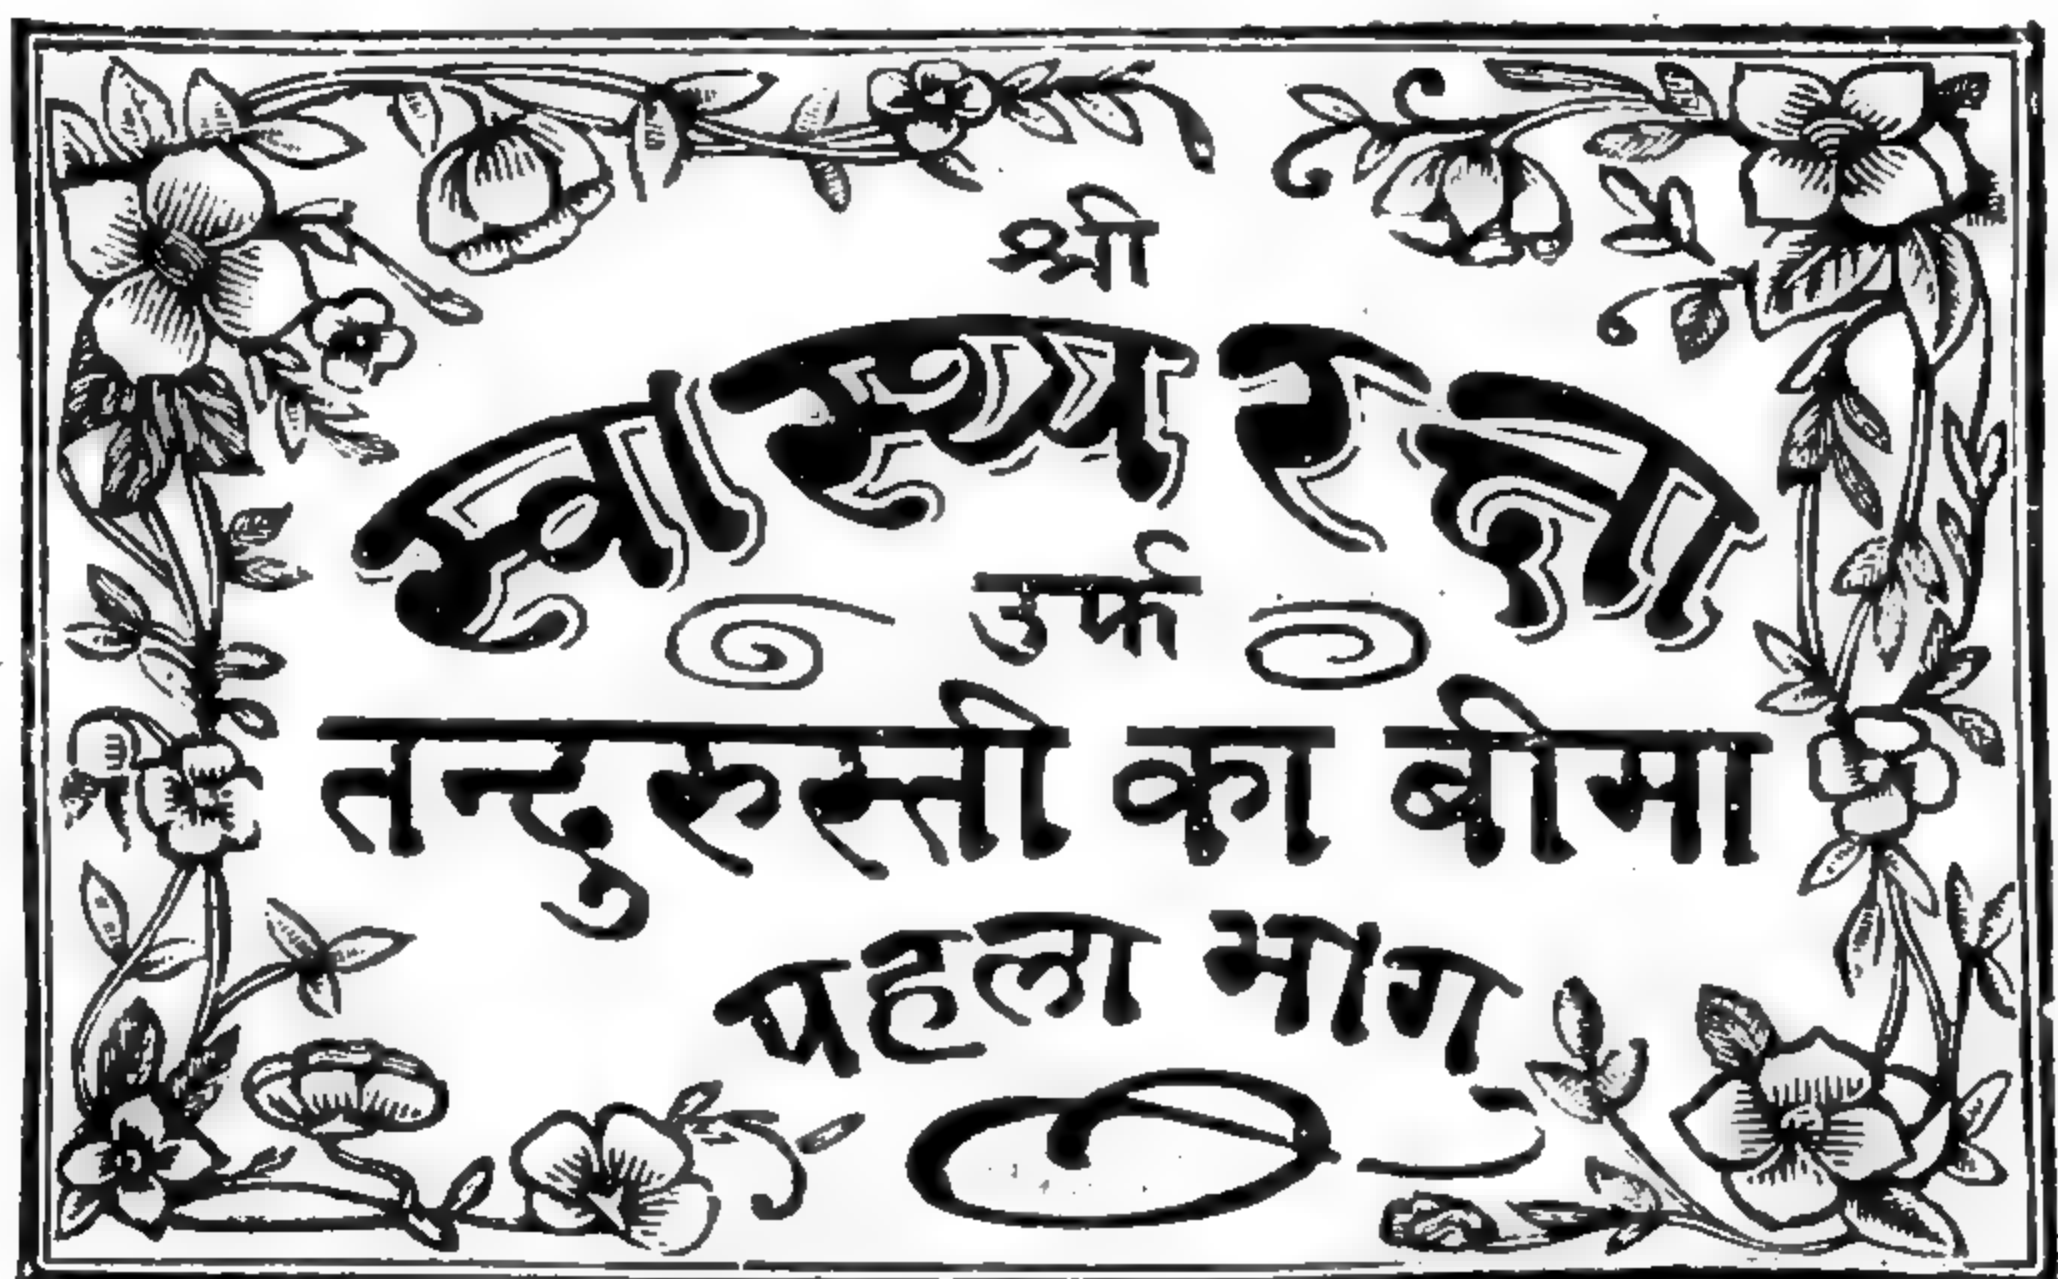 श्री
स्वास्थ्य रक्षा
उर्फ
तन्दुरुस्ती का बीमा
पहला भाग